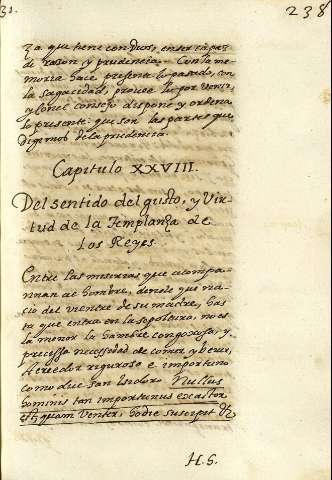 31.
238
za que tiene con Dios, en ser capaz
de razon y prudencia. Con la me
moria hace presente lo pasado, con
la sagacidad, provee lo por venir,
y con el consejo dispone y ordena
lo presente: que son las partes que
digimos de la prudencia.
Capitulo XXVIII.
Del sentido del gusto, y Vir-
tud de la Templanza de
los Reyes.
Entre las miserias que acompa-
nnan al hombre, desde que na-
cio del vientre de su madre, has
ta que entra en la sepoltura, no es
la menor la hambre congoxosa, y
precissa necessidad de comer y bever,
Acreedor riguroso e importuno
como dice san Isidoro Nullus
hominis tan importunus exactor
est, quam venter, hodie suscipit &
H.5.